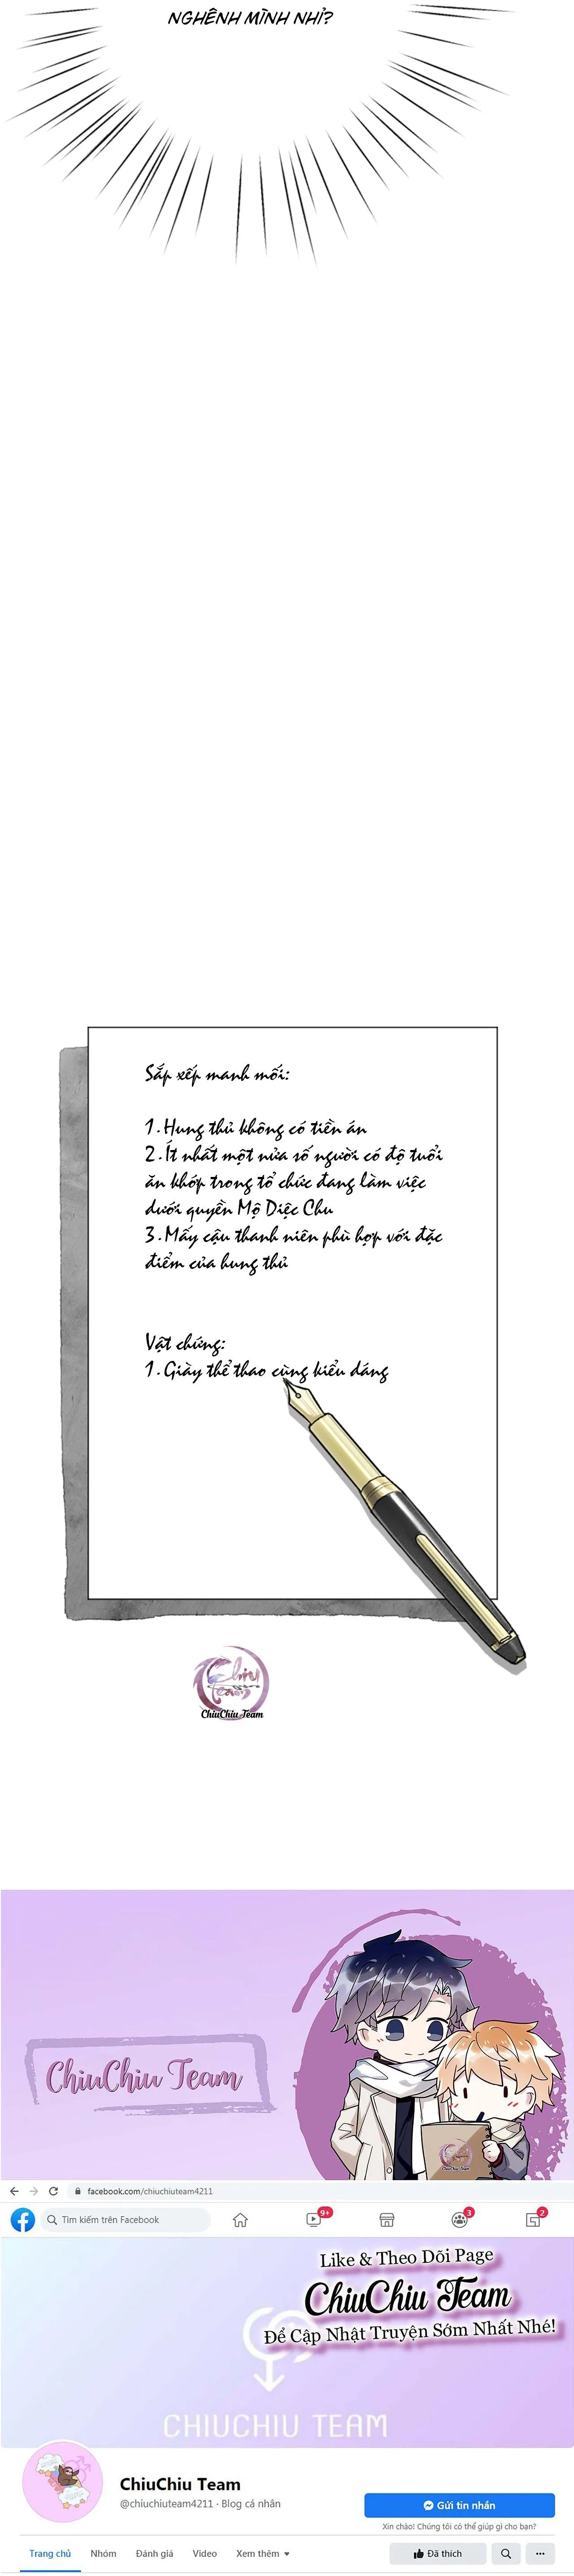 NGHÊNH MÌNH NHỈ?
Sắp xếp manh mối:
1. Hung thủ không có tiền án
2. Ít nhất một nửa số người có độ tuổi
ăn khớp trong tổ chức đang làm việc
dưới quyền Mộ Diệc Chu
3. Mấy cậu thanh niên phù hợp với đặc
điểm của hung thủ
Vật chứng:
1. Giày thể thao cùng kiểu dáng
Chiu
Team
ChiuChiu Team
ChiuChiu Team
facebook.com/chiuchiuteam4211
Tìm kiếm trên Facebook
9+
3
2
Like & Theo Dõi Page
ChiuChiu Team
Để Cập Nhật Truyện Sớm Nhất Nhé!
CHIUCHIU TEAM
ChiuChiu Team
@chiuchiuteam4211 · Blog cá nhân
Gửi tin nhắn
Xin chào! Chúng tôi có thể giúp gì cho bạn?
Trang chủ Nhóm Đánh giá Video Xem thêm
Đã thích